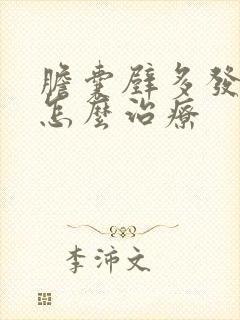 膽囊壁多發
怎麼治療
李沛文